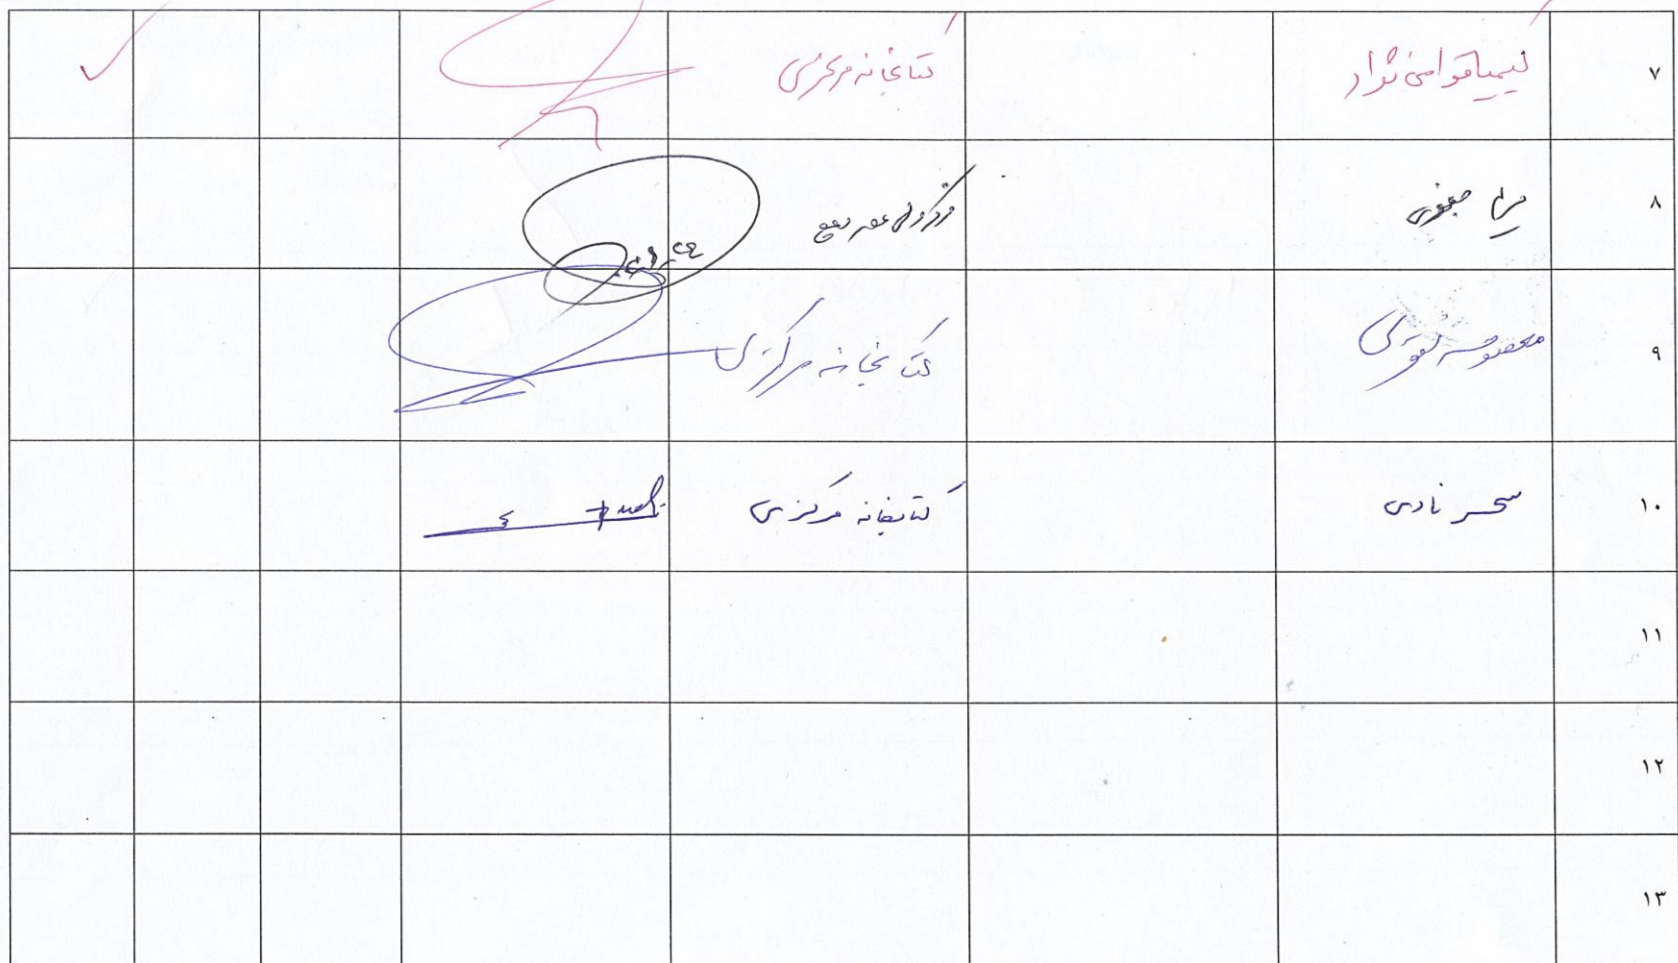 ۷ کیمیا قوامی نژاد کتابخانه مرکزی
۸ جعفری
۹ معصومه تقوی کتابخانه مرکزی
۱۰ سحر نادری کتابخانه مرکزی
۱۱
۱۲
۱۳